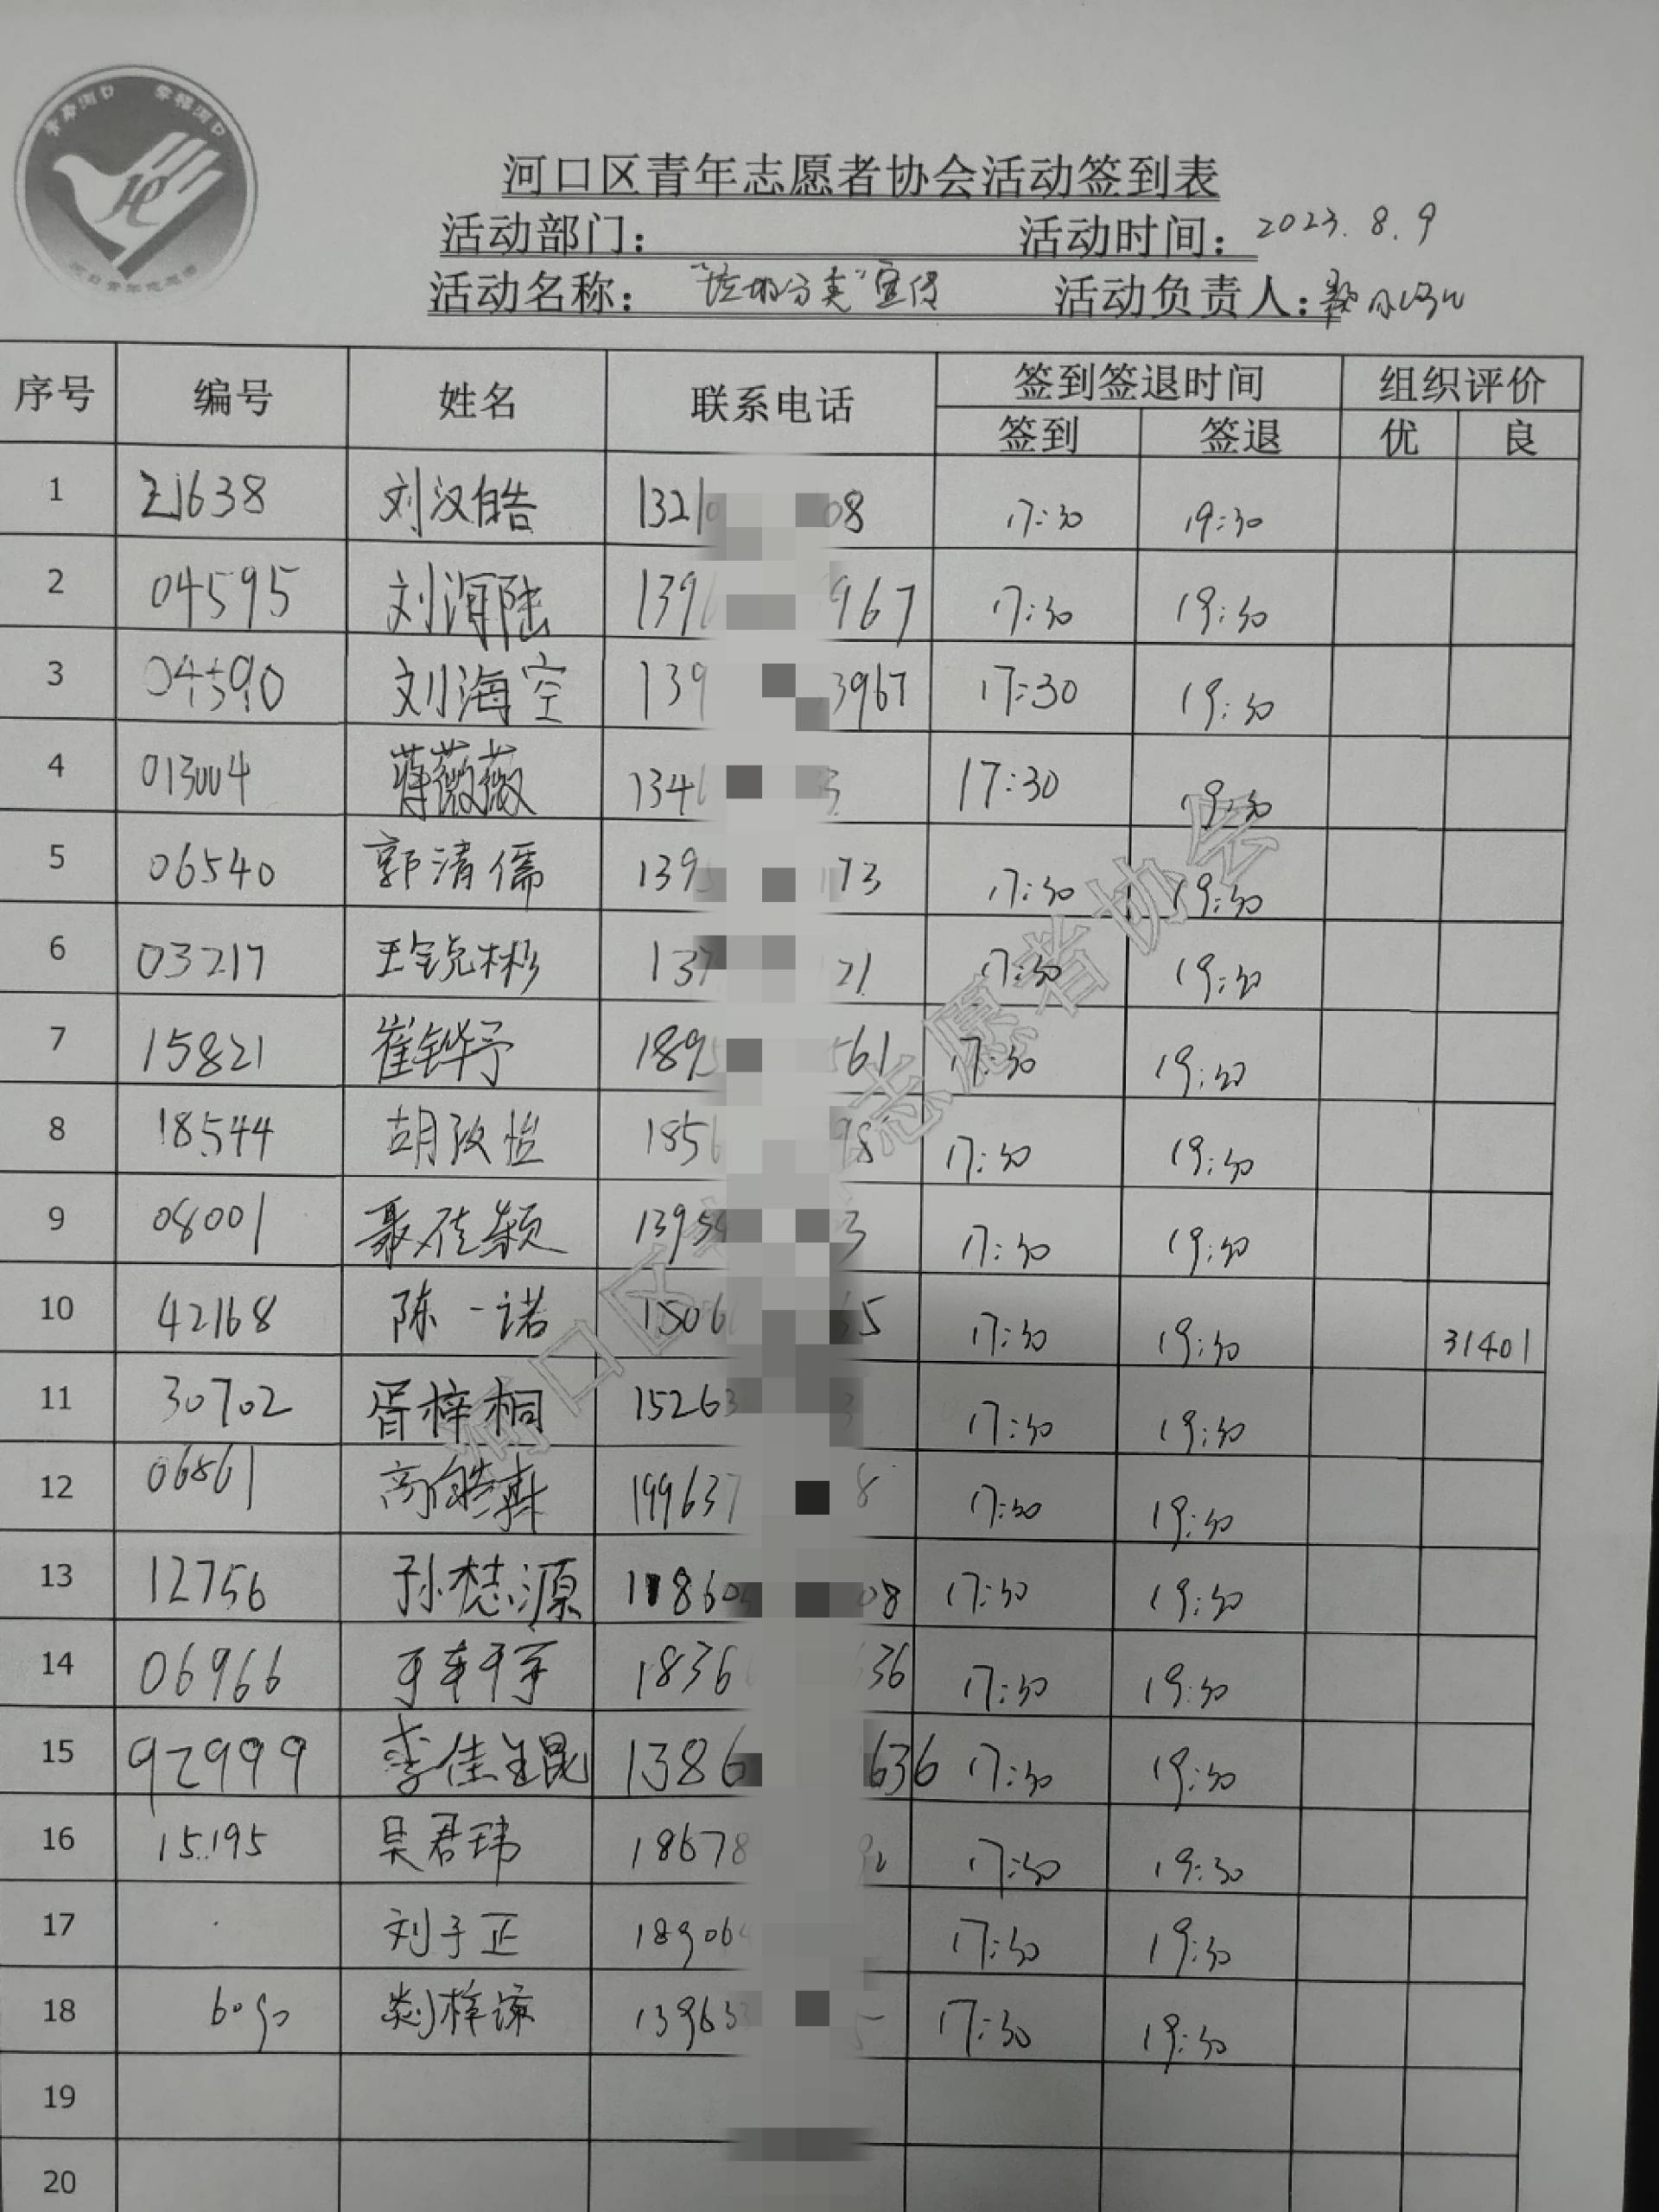 青春河口 幸福河口
河口青年志愿者
河口区青年志愿者协会活动签到表
活动部门： 活动时间：2023.8.9
活动名称："垃圾分类"宣传 活动负责人：
序号 编号 姓名 联系电话 签到签退时间 组织评价
签到 签退 优 良
1 21638 刘汉皓 1321 08 17:30 19:30
2 04595 刘海陆 139 967 17:30 19:30
3 04590 刘海空 139 3967 17:30 19:30
4 013004 蒋薇薇 134 17:30 19:30
5 06540 郭清儒 139 173 17:30 19:30
6 03217 137 21 17:30 19:30
7 15821 崔铧予 189 561 17:30 19:30
8 18544 胡孜怡 185 98 17:30 19:30
9 08001 聂佳颖 1395 3 17:30 19:30
10 42168 陈一诺 1506 65 17:30 19:30 31401
11 30702 胥梓桐 15263 3 17:30 19:30
12 06861 高皓 199637 8 17:30 19:30
13 12756 孙 源 18604 08 17:30 19:30
14 06966 1836 636 17:30 19:30
15 92999 李佳 1386 636 17:30 19:30
16 15195 吴君玮 18678 17:30 19:30
17 刘子正 18906 17:30 19:30
18 6090 梓 13963 17:30 19:30
19
20
河口区青年志愿者协会